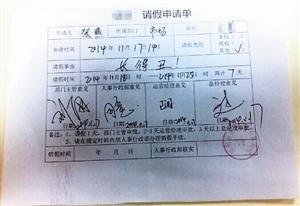 请假申请单
申请人 张 所属部门 市场
申请时间 2014年11月17日 请假类别 其他 √
请假事由 长得丑！
请假时间 2014年11月18日 2014年11月25日 共计 7 天
部门主管意见 人事行政部意见 运营经理意见 总经理意见
日期 日期 日期 日期
备注：1、请假1天，部门主管审批，2-3天运营经理审批，3天以上总经理审批。
2、请在规定时间内到人事行政部办理销假手续。
销假时间 年 月 日 人事行政部核实